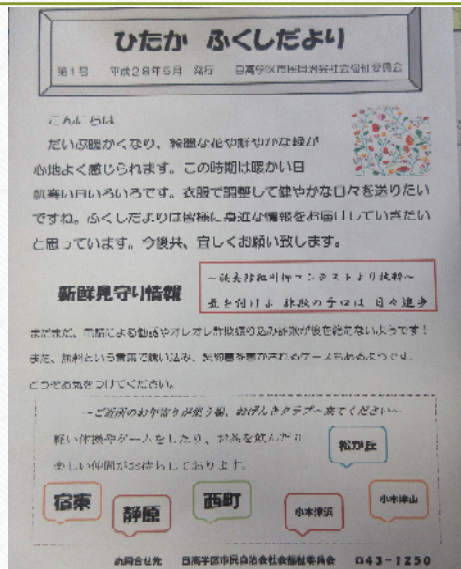 ひたか ふくしだより
第1号 平成28年5月 発行 日高学区市民自治会社会福祉委員会
こんにちは
だいぶ暖かくなり、綺麗な花や鮮やかな緑が
心地よく感じられます。この時期は暖かい日
肌寒い日いろいろです。衣服で調整して健やかな日々を送りたい
ですね。ふくしだよりは皆様に身近な情報をお届けしていきたい
と思っています。今後共、宜しくお願い致します。
新鮮見守り情報
コンテストより抜粋~
気を付けよ 詐欺の手口は 日々進歩
まだまだ、電話による勧誘やオレオレ詐欺振り込み詐欺が後を絶たないようです!
また、無料という言葉で誘い込み、契約書を書かされるケースもあるようです。
どうぞお気をつけてください。
~ご近所のお年寄りが集う場、おげんきクラブへ来てください~
軽い体操やゲームをしたり、お茶を飲んだり
楽しい仲間がお待ちしております。
松が丘
宿東
静原
西町
小木津浜
小木津山
お問合せ先 日高学区市民自治会社会福祉委員会 ☎43-1250